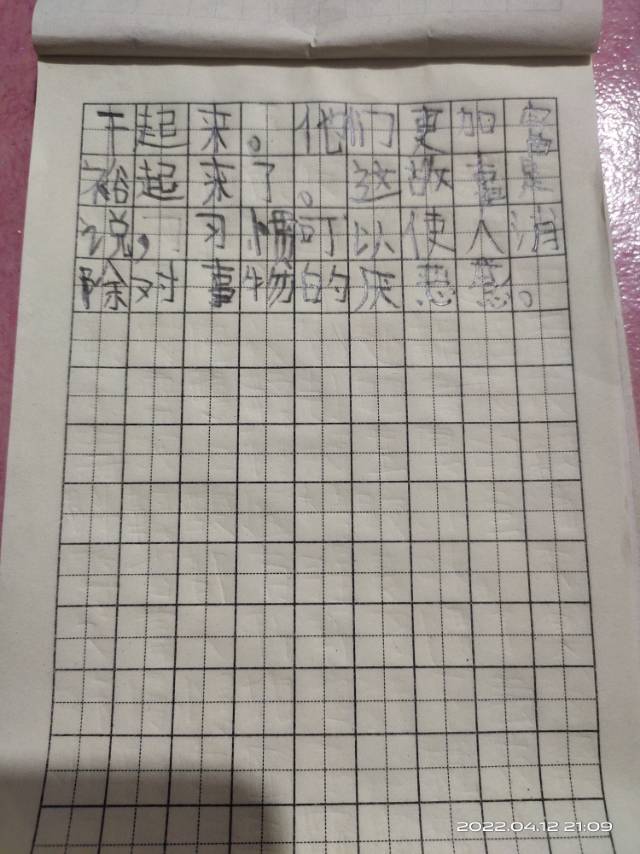 干起来。他们更加富
裕起来了。这故事是
说,习惯可以使人消
除对事物的厌恶意。
2022.04.12 21:09